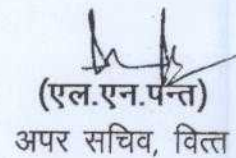 (एल.एन.पन्त)
अपर सचिव, वित्त